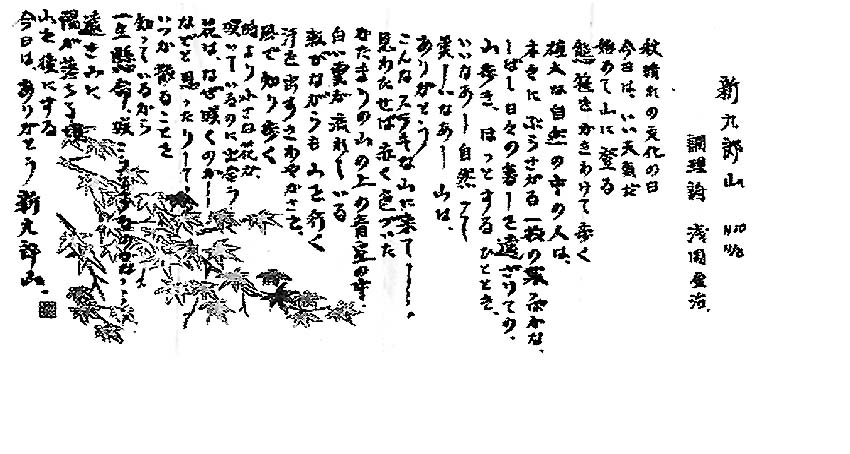 新九郎山 H20 11/3
調理師 浅岡
秋晴れの文化の日
今日は、いい天気だ
始めて山に登る
熊笹をかきわけて歩く
雄大な自然の中の人は、
木々にぶらさがる一枚の葉
しばし日々の暮しを遠ざけての、
山歩き、ほっとするひととき、
いいなあー自然って
美しいなあー山は、
ありがとう
こんなステキな山に来て
見わたせば赤く色づいた
かたまりの山の上の青空の中、
白い雲が流れている
眺めながらも山を行く
汗を出すさわやかさを、
風で知り歩く
時より小さな花が、
咲いているのに出会う
花は、なぜ咲くのか
などと思ったりして
いつか散ることを
知っているから
一生懸命、咲こうとするのかな
遠きみた
陽が落ちる頃
山を後にする
今日は、ありがとう新九郎山。